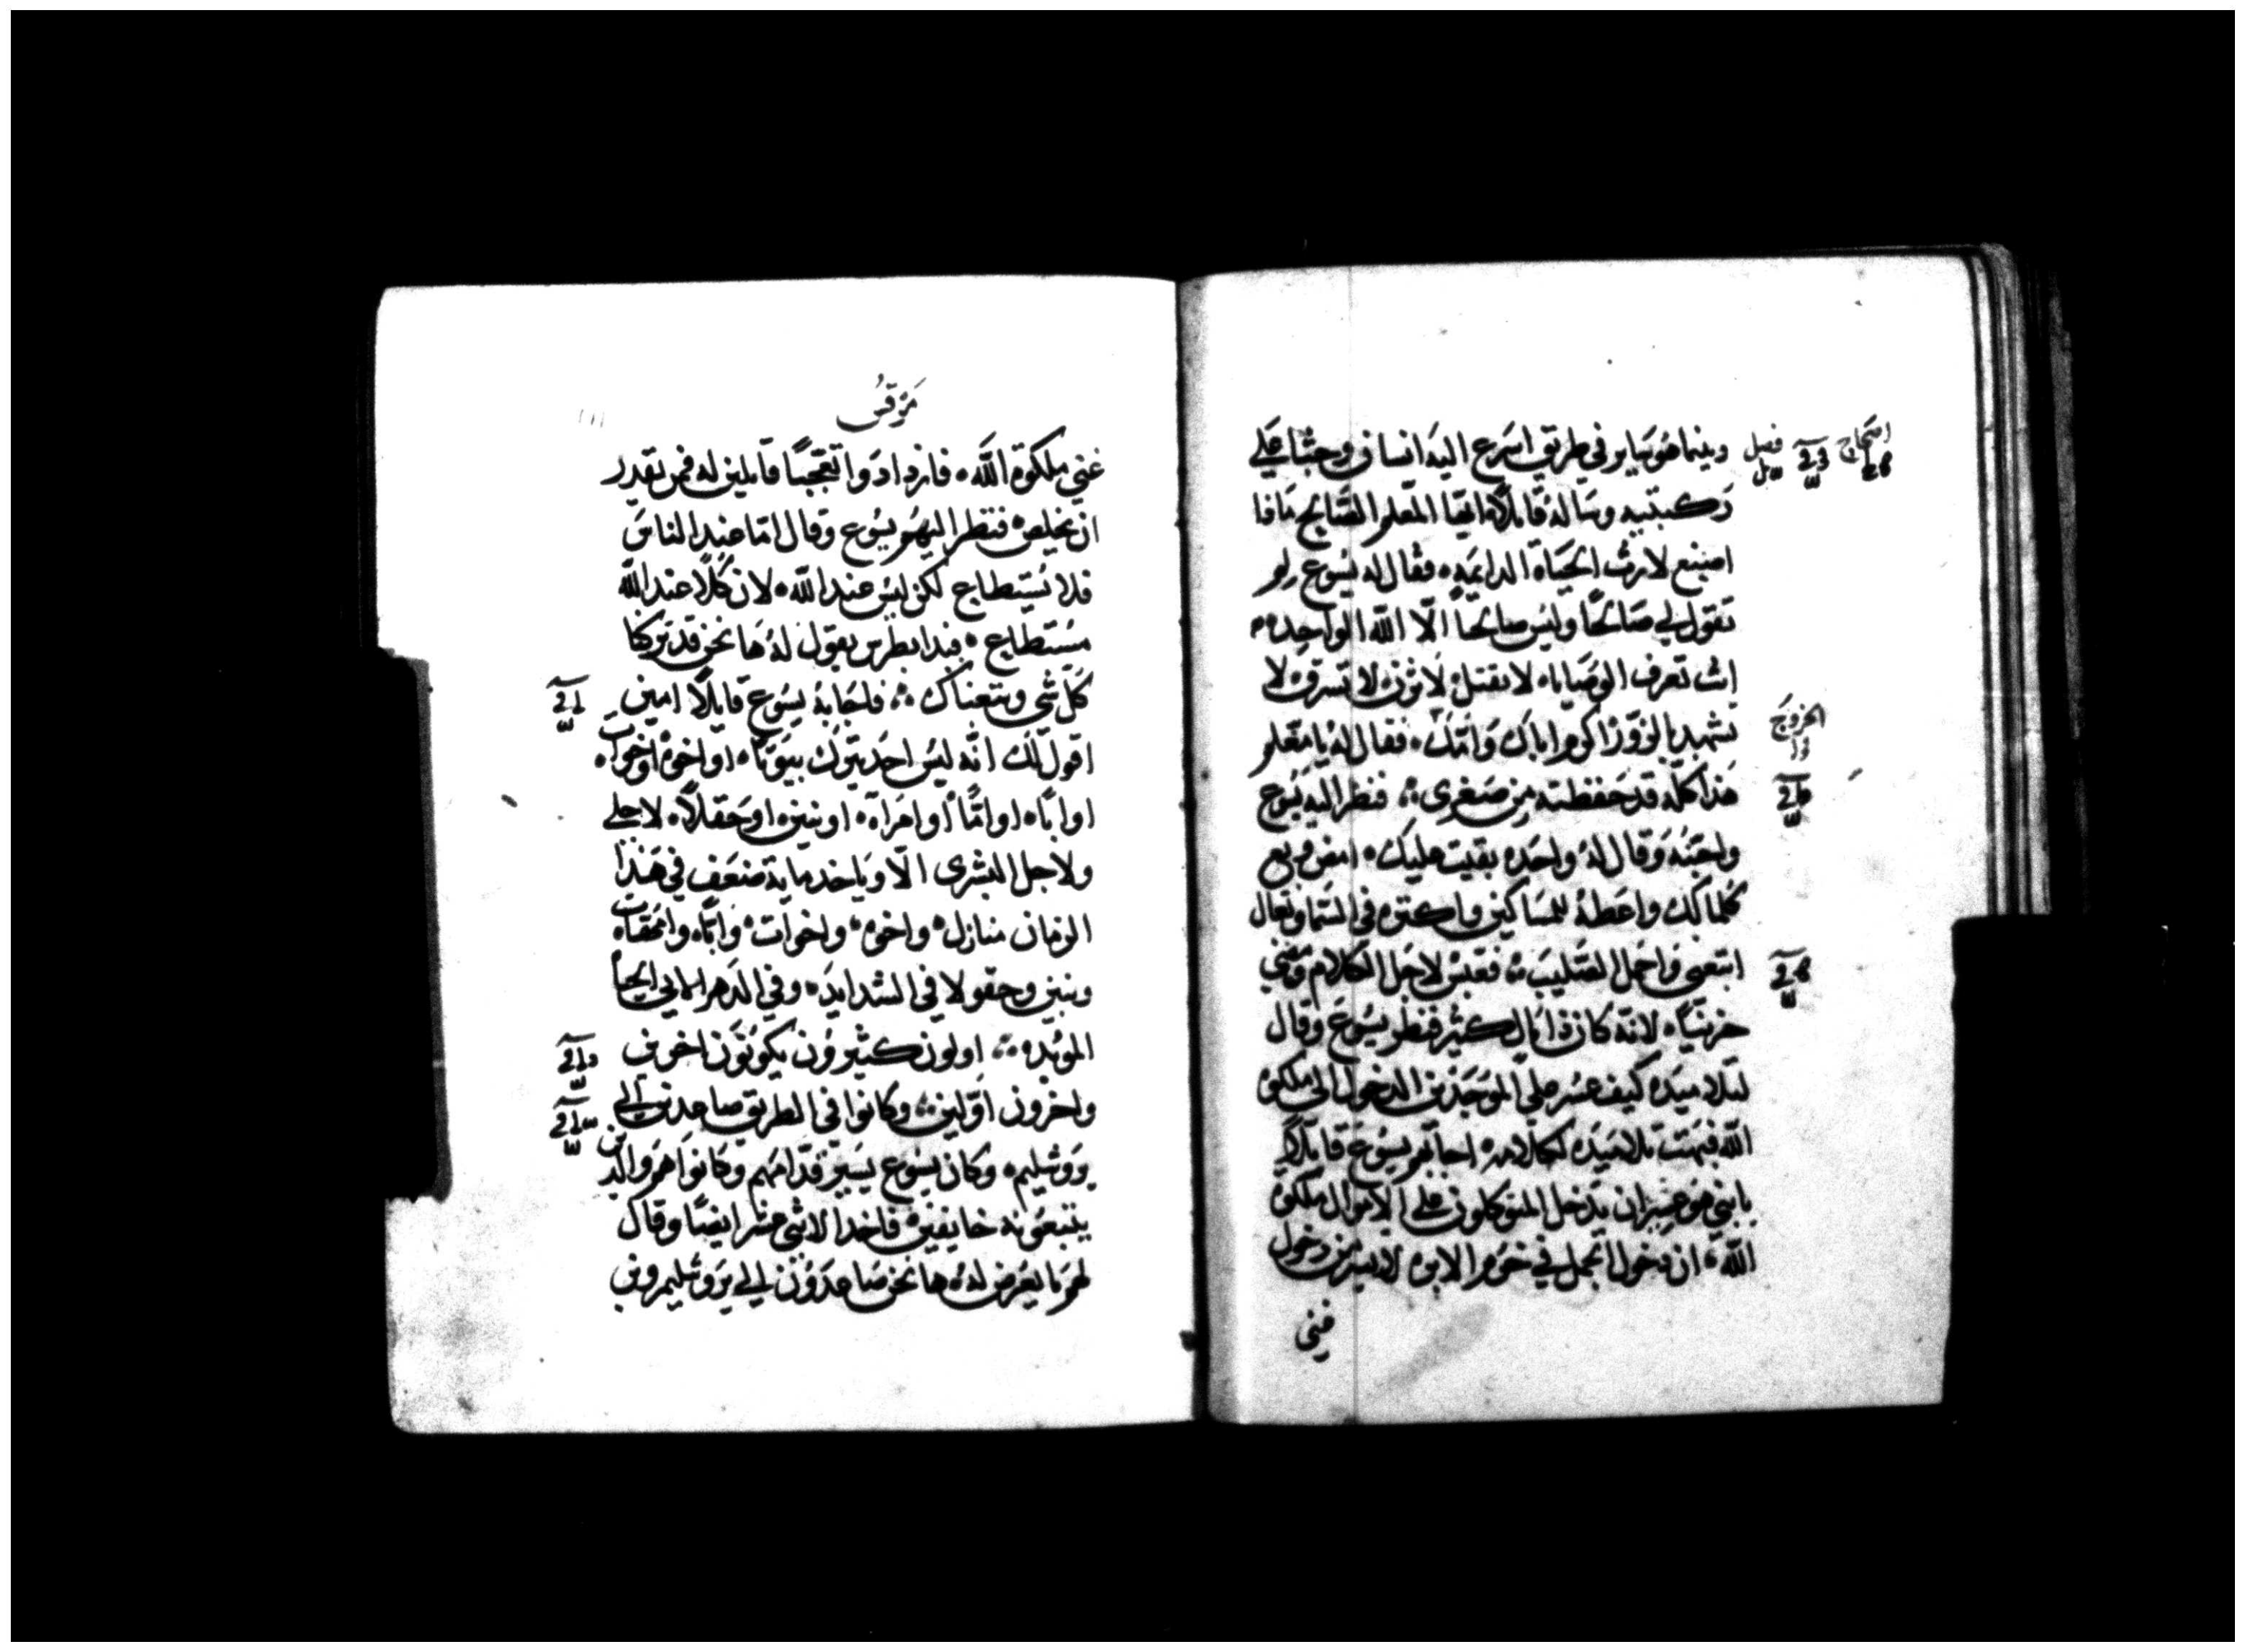 وبينما هو ساير في طريق اسرع اليه انسان وجثا علي
ركبتيه وساله قايلاً ايها المعلم الصالح ماذا
اصنع لارث الحياة الدايمه فقال له يسوع لم
تقول لي صالحًا وليس صالحا الّا الله الواحد
انت تعرف الوصايا لا تقتل لا تزن لا تسرق لا
تشهد بالزور اكرم اباك وامّك فقال له يا معلم
هذا كلّه قد حفظته من صغري فنظر اليه يسوع
واحبّه وقال لهُ واحده بقيت عليك امض وبع
كلمالك واعطهُ للمساكين واكتنزه في السما وتعال
اتبعني واحمل الصليب فعبس لاجل الكلام ومضي
حزينًا لانّه كان ذا مال كثير فنظر يسوع وقال
لتلاميذه كيف عسر علي الموجدين الدخول الي ملكوة
الله فبهتت تلاميذه لكلامه اجابهم يسوع قايلاً
يا بني هو عسر ان يدخل المتوكلون علي الاموال ملكوة
الله ان دخول الجمل في خرم الابره لايسر من دخول
غني
مرقس
غني ملكوة الله فازدادوا تعجبًا قايلين له فمن يقدر
ان يخلص فنظر اليهم يسوع وقال امّا عند الناس
فلا يُستطاع لكن ليس عند الله لان كلاً عند الله
مستطاع فبدا بطرس يقول لهُ ها نحن قد تركنا
كل شي وتبعناك فاجابهُ يسوع قايلاً امين
اقول لك انّه ليس احد يترك بيوتًا او اخوة او اخوات
او ابًا او امًّا او امراه او بنين او حقلاً لاجلي
ولاجل البشري الّا وياخد ماية ضعف في هذا
الزمان منازل واخوه واخوات وابًا وامّهات
وبنين وحقولا في الشدايد وفي الدهر الاتي الحياة
الموبده اولون كثيرون يكونون اخرين
واخرون اوّلين وكانوا في الطريق صاعدين الي
يروشليم وكان يسوع يسير قدّامهم وكانوا هم والذين
يتبعونه خايفين فاخد الاثني عشر ايضًا وقال
لهم ما يعرض له ها نحن صاعدون الي يروشليم وبن